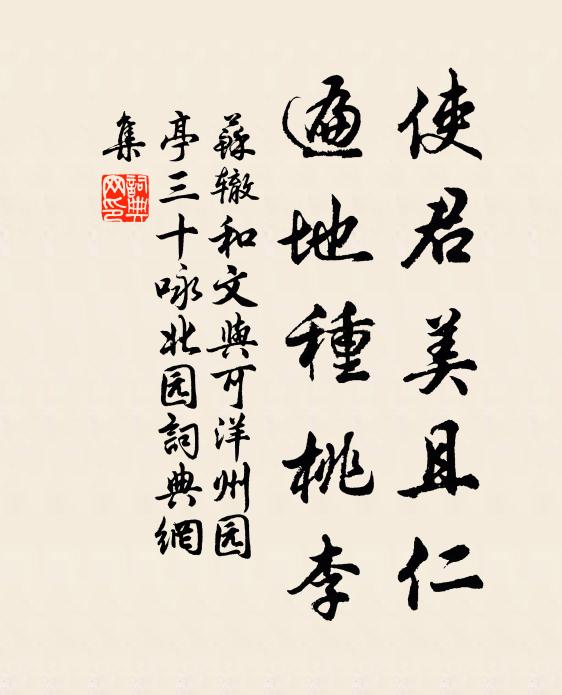 使君美且仁
遍地種桃李
蘇辙和文與可洋州园
亭三十咏北园詞典網
集
詞典網印